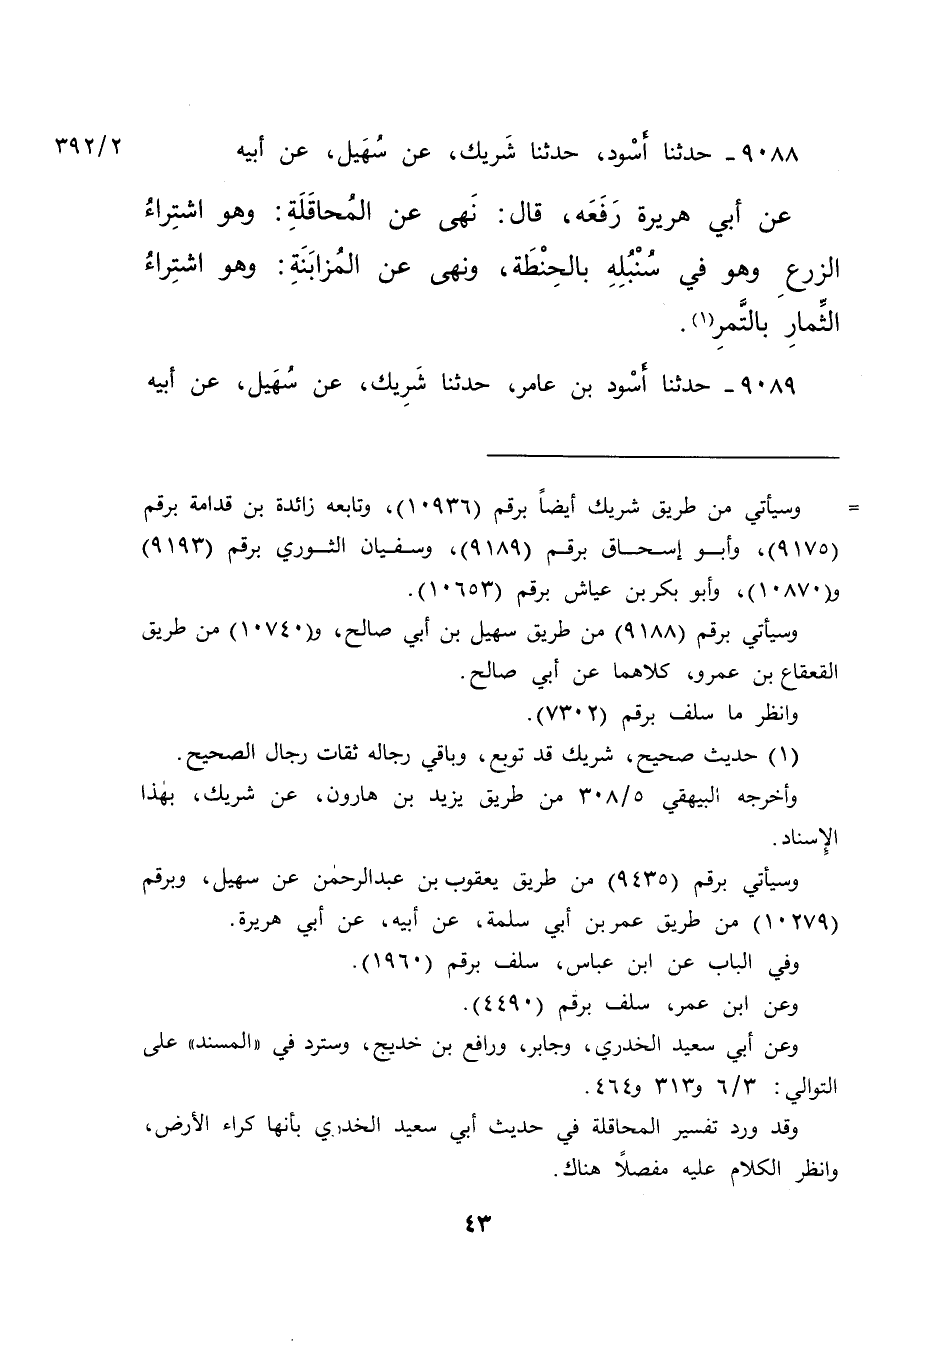 ٣٩٢/٢
٩٠٨٨ـ حدثنا أَسْود، حدثنا شَريك، عن سُهَيل، عن أبيه
عن أبي هريرة رَفَعَه، قال: نَهى عن المُحاقَلَةِ: وهو اشتِراءُ
الزرعِ وهو في سُنْبُلِهِ بالحِنْطَة، ونهى عن المُزابَنَةِ: وهو اشتِراءُ
الثِّمارِ بالتَّمرِ(١).
٩٠٨٩ـ حدثنا أَسْود بن عامر، حدثنا شَرِيك، عن سُهَيل، عن أبيه
= وسيأتي من طريق شريك أيضاً برقم (١٠٩٣٦)، وتابعه زائدة بن قدامة برقم
(٩١٧٥)، وأبو إسحاق برقم (٩١٨٩)، وسفيان الثوري برقم (٩١٩٣)
و(١٠٨٧٠)، وأبو بكر بن عياش برقم (١٠٦٥٣).
وسيأتي برقم (٩١٨٨) من طريق سهيل بن أبي صالح، و(١٠٧٤٠) من طريق
القعقاع بن عمرو، كلاهما عن أبي صالح.
وانظر ما سلف برقم (٧٣٠٢).
(١) حديث صحيح، شريك قد توبع، وباقي رجاله ثقات رجال الصحيح.
وأخرجه البيهقي ٣٠٨/٥ من طريق يزيد بن هارون، عن شريك، بهٰذا
الإسناد.
وسيأتي برقم (٩٤٣٥) من طريق يعقوب بن عبدالرحمٰن عن سهيل، وبرقم
(١٠٢٧٩) من طريق عمر بن أبي سلمة، عن أبيه، عن أبي هريرة.
وفي الباب عن ابن عباس، سلف برقم (١٩٦٠).
وعن ابن عمر، سلف برقم (٤٤٩٠).
وعن أبي سعيد الخدري، وجابر، ورافع بن خديج، وسترد في «المسند» على
التوالي: ٦/٣ و٣١٣ و٤٦٤.
وقد ورد تفسير المحاقلة في حديث أبي سعيد الخدري بأنها كراء الأرض،
وانظر الكلام عليه مفصلاً هناك.
٤٣